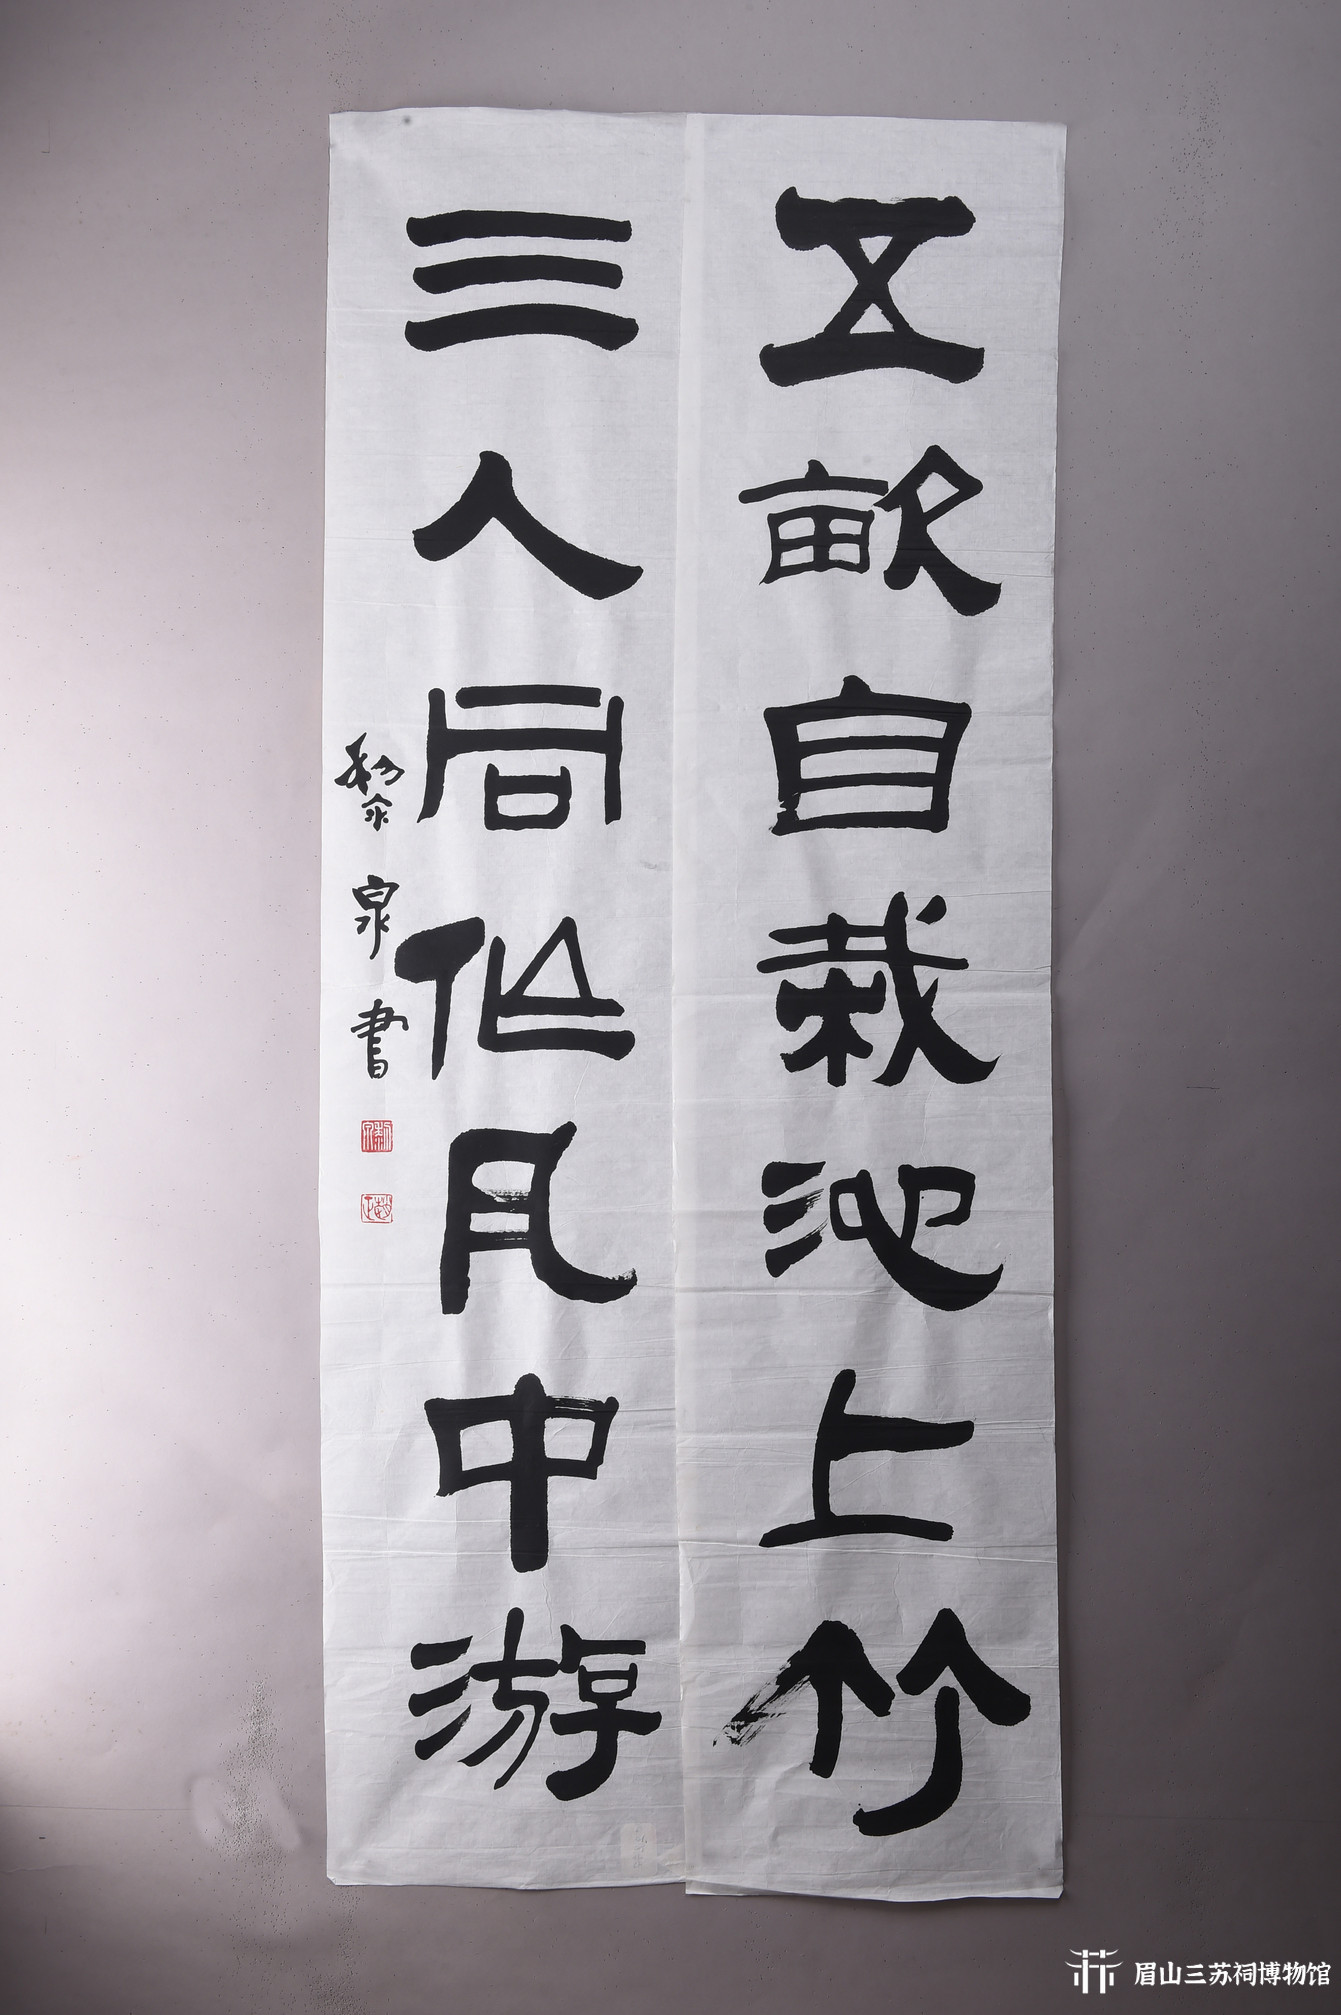 五畝自栽池上竹
三人同作月中游
黎泉書
眉山三苏祠博物馆